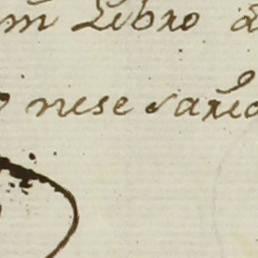 m Libro
nesesario